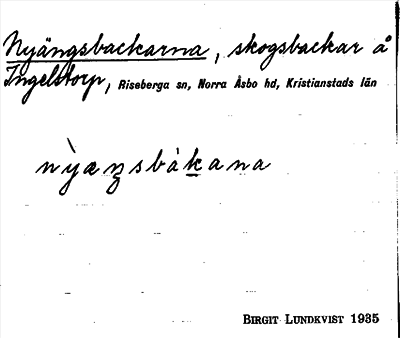 Nyängsbackarna, skogsbackar å
Ingelstorp, Riseberga sn, Norra Åsbo hd, Kristianstads län
nỳæŋsbàkana
BIRGIT LUNDKVIST 1935